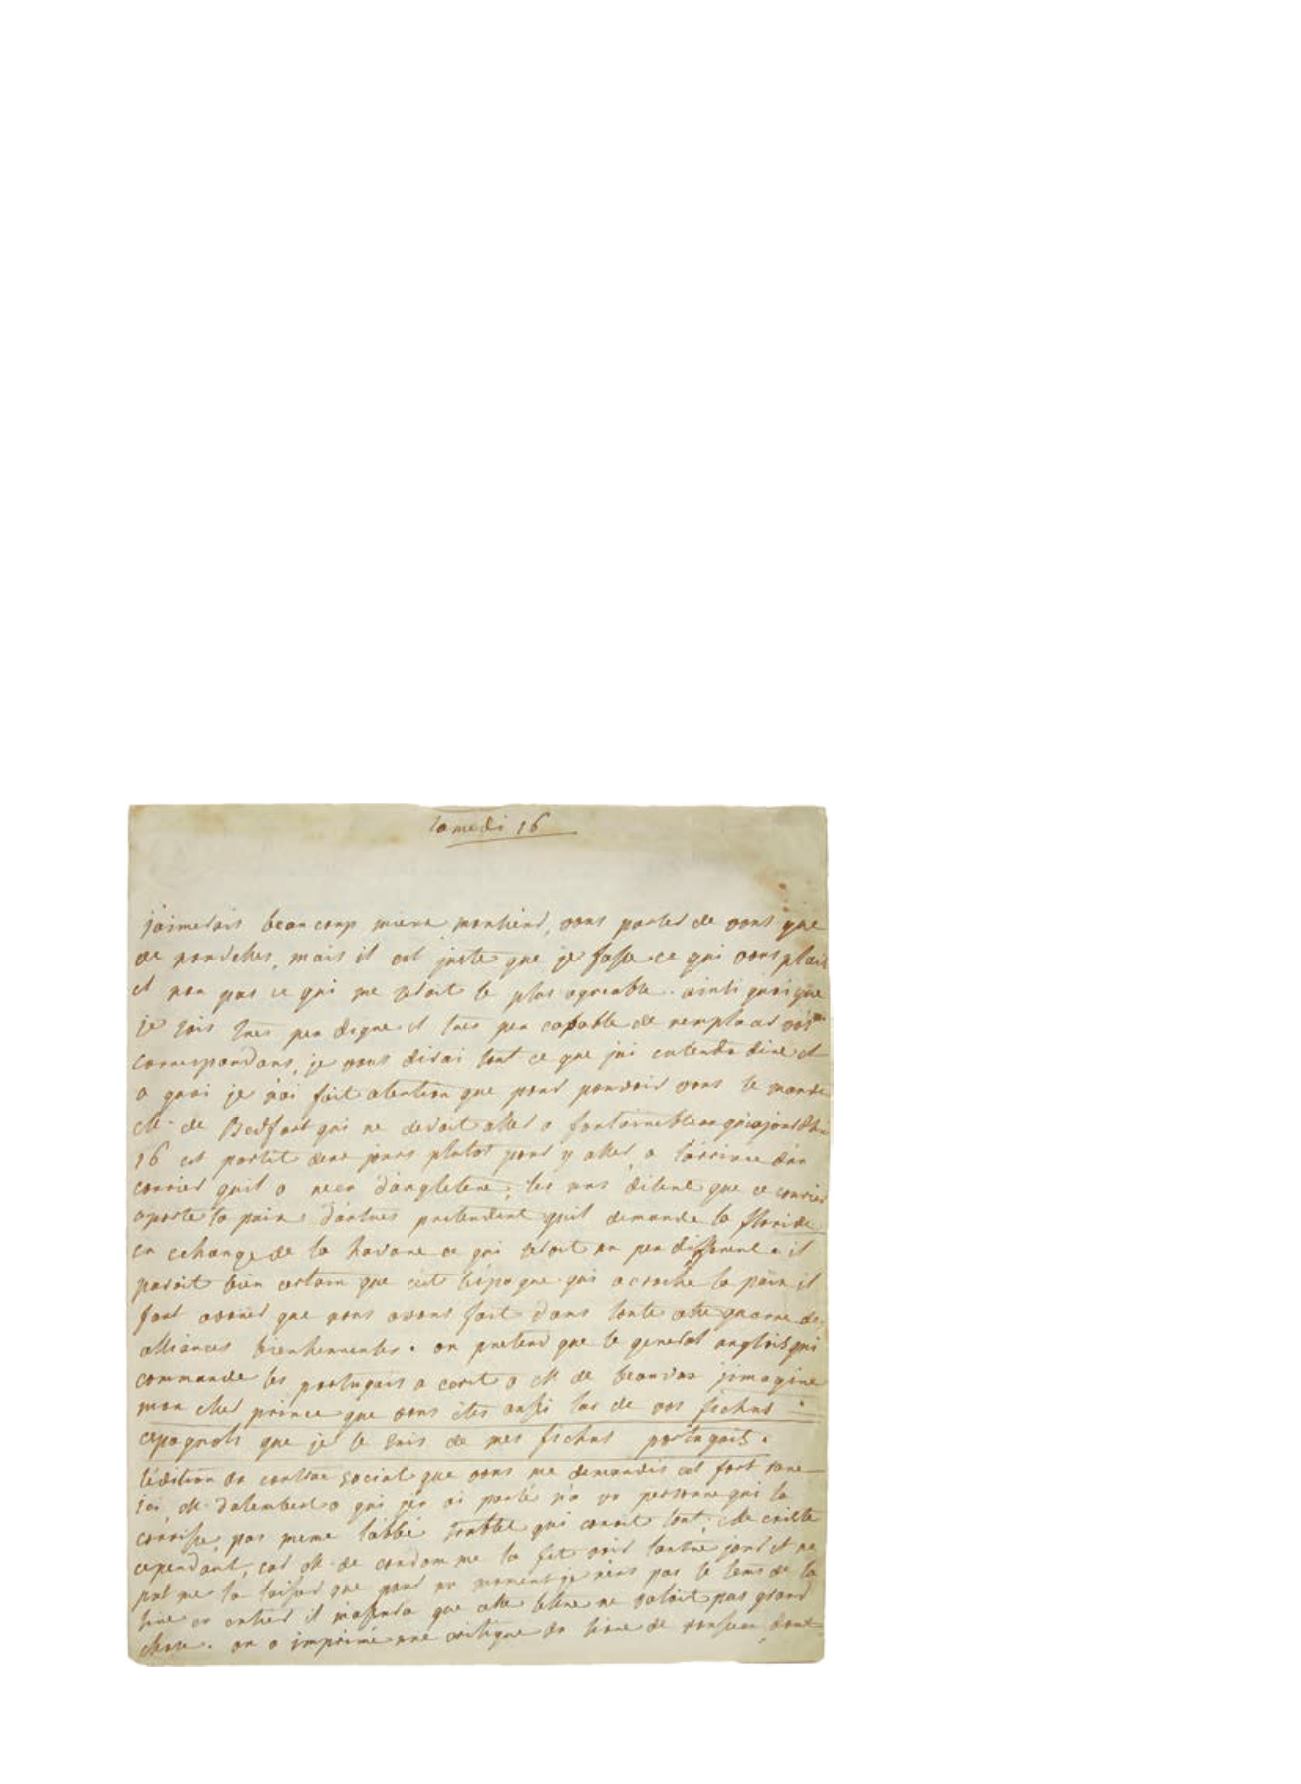 samedi 16
j'aimerois beaucoup mieux monsieur, vous parler de vous que
de nouvelles, mais il est juste que je fasse ce qui vous plait
et non pas ce qui me seroit le plus agreable. ainsi quoique
je sois tres peu digne et tres peu capable de remplacer vos
correspondans, je vous dirai tout ce que j'ai entendu dire et
a quoi je n'ai fait atention que pour pouvoir vous le mander
M. de Bedfort qui ne devoit aller a fontainebleau qu'aujourdhui
16 est partit deux jours plutot pour y aller, a l'arrivée d'un
courier quil a recu d'angleterre, les uns disent que ce courier
aporte la paix d'autres pretendent quil demande la floride
en echange de la havane ce qui seroit un peu different. il
paroit bien certain que c'est l'espagne qui acroche la paix il
faut avouer que nous avons fait dans toute cette guerre des
alliances bien heureuses. on pretend que le general anglois qui
commande les portugais a ecrit a M. de beauvau j'imagine
mon cher prince que vous etes aussi las de vos fichus
espagnols que je le suis de mes fichus portugais.
l'édition du contrat social que vous me demandés est fort rare
ici, M. dalembert a qui j'en ai parlé n'a vu personne qui la
connoisse, pas meme l'abbé trublet qui connoit tout, elle existe
cependant, car M. de condom me la fit voir l'autre jour et ne
put me la laisser que pour un moment je n'eus pas le tems de la
lire en entier il m'assura que cette lettre ne valoit pas grand
chose. on a imprimé une critique du livre de rousseau, dont